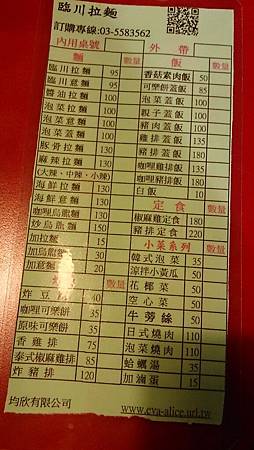 臨川拉麵
訂購專線:03-5583562
內用桌號
外 帶
麵 數量
臨川拉麵 95
臨川意麵 95
醬油拉麵 100
泡菜拉麵 100
泡菜意麵 100
泡菜蓋麵 100
豚骨拉麵 130
麻辣拉麵 130
(大辣、中辣、小辣)
海鮮拉麵 130
海鮮意麵 130
咖哩烏龍麵 130
炒烏龍麵 150
加拉麵 15
加烏龍麵 30
加意麵 20
數量
炸豆 40
咖哩可樂餅 35
原味可樂餅 35
香雞排 75
泰式椒麻雞排 85
炸豬排 120
飯 數量
香菇素肉飯 50
可樂餅蓋飯
泡菜蓋飯
親子蓋飯
豬肉蓋飯
雞排蓋飯
豬排蓋飯
咖哩雞排飯
咖哩豬排飯 180
白飯 10
定食
椒麻雞定食 180
豬排定食 220
小菜系列 數量
韓式泡菜 35
涼拌小黃瓜 50
花椰菜 50
空心菜 50
牛蒡絲 50
日式燒肉 110
泡菜燒肉 110
蛤蠣湯 35
加滷蛋 15
均欣有限公司
www.eva-alice.url.tw